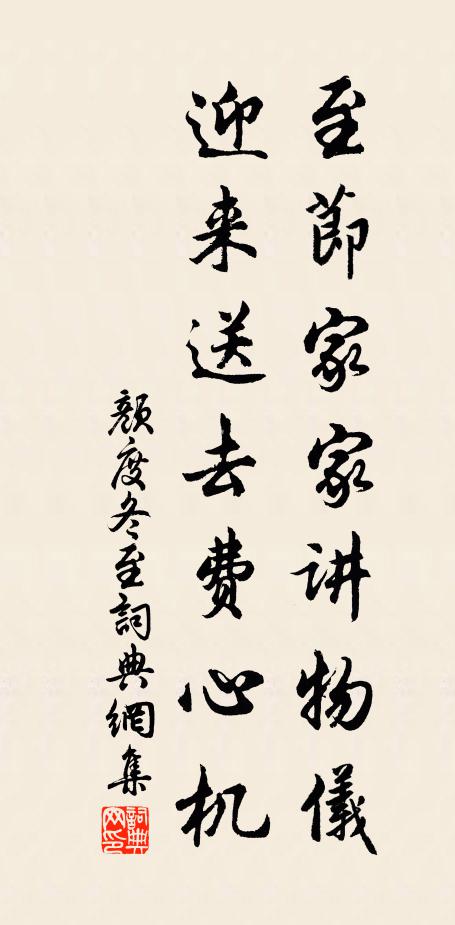 至節家家讲物儀
迎来送去費心机
顏度冬至詞典網集
詞典網印